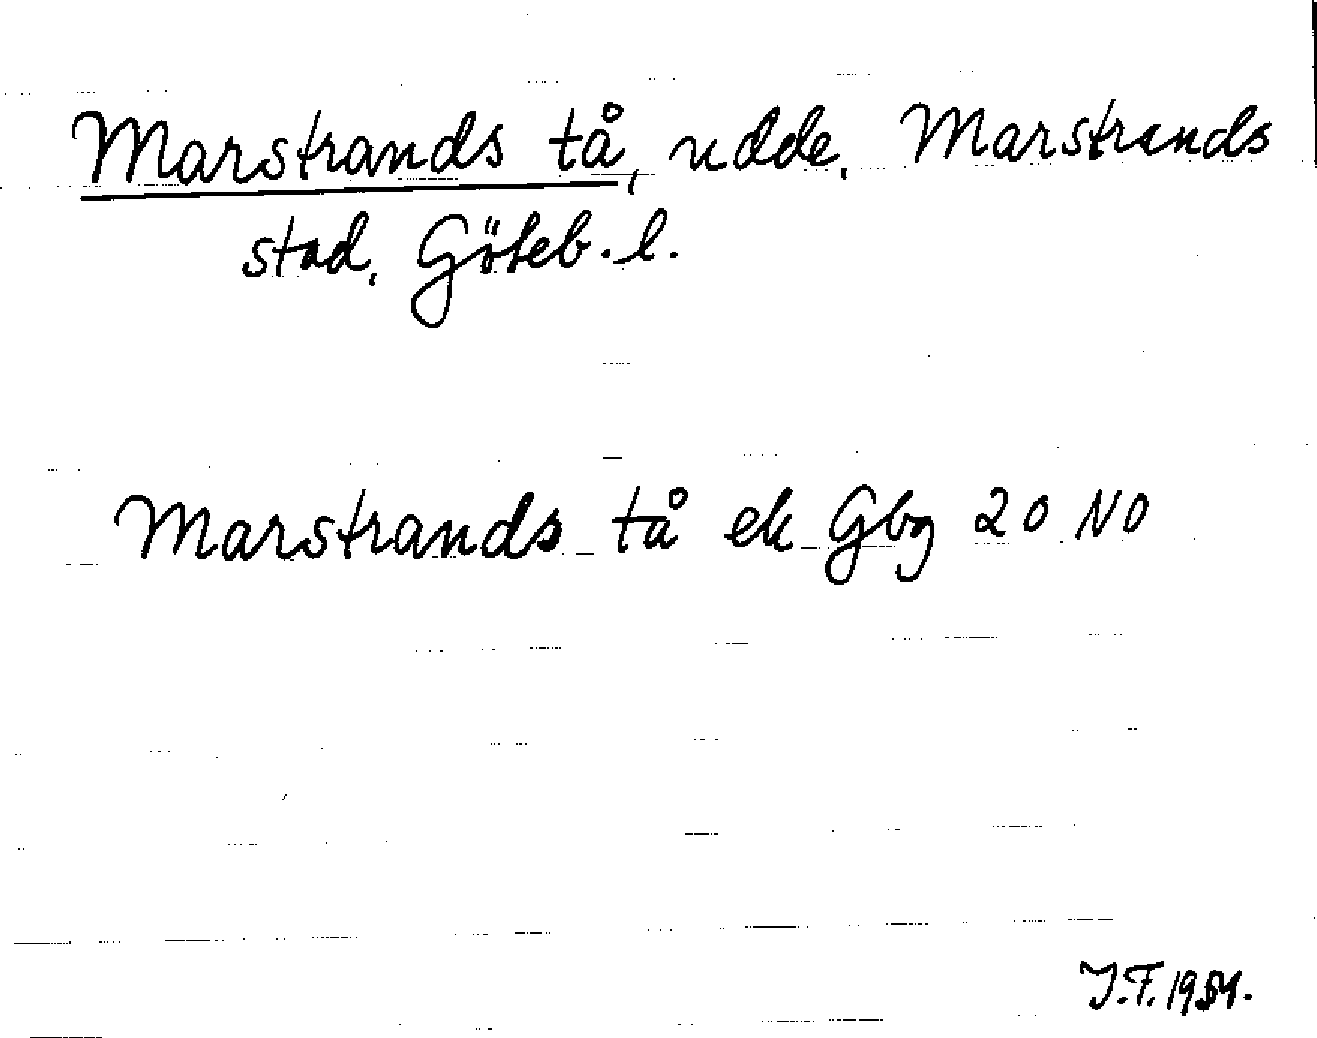 Marstrands tå, udde, Marstrands
stad, Göteb. l.
Marstrands tå ek Gbg 20 NO
J.F. 1951.